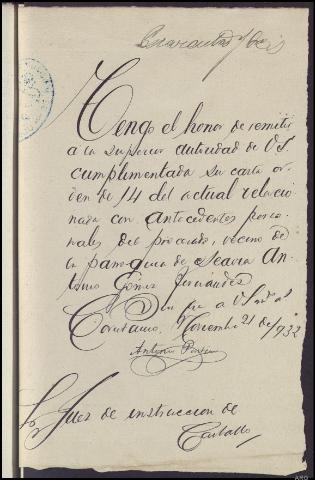 Cuarenta y seis
Tengo el honor de remitir
a la superior autoridad de V.S.
cumplimentada su carta or-
den de 14 del actual relacio-
nada con antecedentes perso-
nales del procesado, vecino de
la parroquia de Seavia An-
tonio Gómez Fernández
Dios gue a V.S. ms. as.
Coristanco, Noviembre 21 de 1932
Antonio
Sr Juez de instruccion de
Carballo